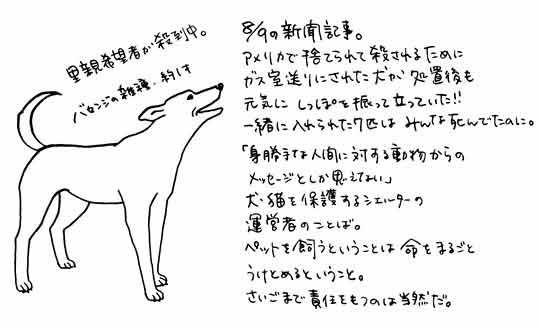 里親希望者が殺到中。
バセンジの雑種・約1才
8/9の新聞記事。
アメリカで捨てられて殺されるために
ガス室送りにされた犬が処置後も
元気にしっぽを振って立っていた!!
一緒に入れられた7匹はみんな死んでたのに。
「身勝手な人間に対する動物からの
メッセージとしか思えない」
犬・猫を保護するシェルターの
運営者のことば。
ペットを飼うということは命をまるごと
うけとめるということ。
さいごまで責任をもつのは当然だ。